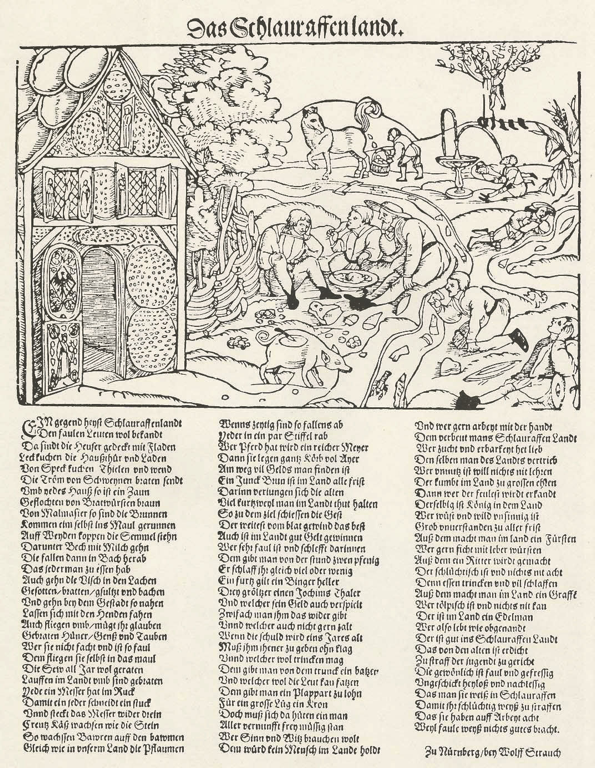 Das Schlauraffenlandt.
EJN gegend heyst Schlauraffenlandt
Den faulen Leuten wol bekandt
Da sindt die Heuser gedeckt mit Fladen
Leckuchen die Haußthür und Laden
Von Speckkuchen Thielen und wend
Die Tröm von Schweynen braten sendt
Vmb yedes Hauß so ist ein Zaun
Geflochten von Bratwürsten braun
Von Malmasier so sind die Brunnen
Kommen eim selbst ins Maul gerunnen
Auff Weyden koppen die Semmel stehn
Darunter Bech mit Milch gehn
Die fallen dann in Bach herab
Das jederman zu essen hab
Auch gehn die Visch in den Lachen
Gesotten/bratten/gsultzt und bachen
Vnd gehn bey dem Gestadt so nahen
Lassen sich mit den Henden fahen
Auch fliegen umb/mügt ihr glauben
Gebraten Hüner/Genß und Tauben
Wer sie nicht facht und ist so faul
Dem fliegen sie selbst in das maul
Die Sew all Jar wol geraten
Lauffen im Landt umb sind gebraten
Yede ein Messer hat im Ruck
Damit ein jeder schneidet ein stuck
Vnnd steckt das Messer wider drein
Kreutz Käß wachsen wie die Stein
So wachssen Bawren auff den bawmen
Gleich wie in unserm Land die Pflaumen
Wenns zeytig sind so fallens ab
Yeder in ein par Stiffel rab
Wer Pferd hat wird ein reicher Meyer
Dann sie legen gantz Körb vol Ayer
Am weg vil Gelds man finden ist
Darinn verjungen sich die alten
Viel kurtzweyl man im Landt thut halten
So zu dem ziel schiessen die Gest
Der weitest vom blat gewind das best
Auch ist im Landt gut Gelt gewinnen
Wer sehr faul ist und schleffe darinnen
Dem gibt man von der stund zwen pfennig
Er schlaff ihr gleich viel oder wenig
Ein furtz gilt ein Binger heller
Drey gröltzer einen Jochims Thaler
Und welcher sein Geld auch verspielt
Zwifach man ihm das wider gibt
Vnnd welcher auch nicht gern zalt
Wenn die schuld wird eins Jares alt
Muß ihm jhener zu geben ohn klag
Vnnd welcher wol trincken mag
Dem gibt man von dem trunck ein batzen
Und welcher wol die Leut kan fatzen
Dem gibt man ein Plappart zu lohn
Für ein grosse Lüg ein Kron
Doch muß sich da hüten ein man
Aller vernunfft frey müssig stan
Wer Sinn und Witz brauchen wolt
Dem würd kein Mensch im Lande holdt
Vnd wer gern arbeyt mit der handt
Dem verbeut mans Schlauraffen Landt
Wer zucht und erbarkeyt het lieb
Den selben man des Landts vertrieb
Wer unnutz ist will nichts nit lehren
Der kumbt im Land zu grossen ehren
Dann wer der feulest wirdt erkandt
Derselbig ist König in dem Land
Wer wüst und wild unsinnig ist
Grob unverstanden zu aller frist
Auß dem macht man im land ein Fürsten
Wer gern ficht mit leber würsten
Auß dem ein Ritter wirdt gemacht
Der schlüchtisch ist und nichts mit acht
Denn essen trincken und vil schlaffen
Auß dem macht man im Land ein Graffe
Wer tölpisch ist und nichts nit kan
Der ist im Land ein Edelman
Wer also lebt wie obgenandt
Der ist gut ins Schlauraffen Landt
Das von den alten ist erdicht
Zu straff der jugendt zu gericht
Die gewönlich ist faul und gefressig
Ungeschickt heyloß und nachlessig
Das man sie weiß in Schlauraffen
Damit ihr schlüchtig weyß zu straffen
Das sie haben auff Arbeyt acht
Weyl faule weyß nichts gutes bracht.
Zu Nürnberg/bey Wolff Strauch